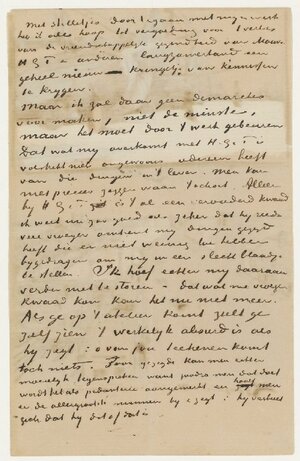 Met stilletjes door te gaan met mijn werk
heb ik alle hoop tot vergoeding voor 't verlies
van de vriendschappelijke gezindheid van Mauve
H G T en anderen langzamerhand een
geheel nieuw kringetje van kennissen
te krijgen.
Maar ik zal daar geen demarches
voor maken, niet de minste,
maar het moet door 't werk gebeuren
Dat wat mij overkomt met H. G. T. is
volstrekt niet ongewoons iedereen heeft
van die dingen in 't leven. Men kan
niet precies zeggen waar 't schort. Alleen
bij H. G. T. is 't al een verouderd kwaad
ik weet nu zoo goed als zeker dat hij reeds
vroeger omtrent mij dingen gezegd
heeft die er niet weinig toe hebben
bijgedragen om mij in een slecht blaadje
te stellen. Ik hoef echter mij daaraan
verder niet te storen - dat wat me vroeger
kwaad kon kan het nu niet meer.
Als ge op 't atelier komt zult ge
zelf zien 't werkelijk absurd is als
hij zegt: o van jou teekenen komt
toch niets.
moeielijk tegenspreken want zoodra men dat doet
wordt het als pedanterie aangemerkt en heeft men
er de allergrootste
zich dat hij dit of dat is